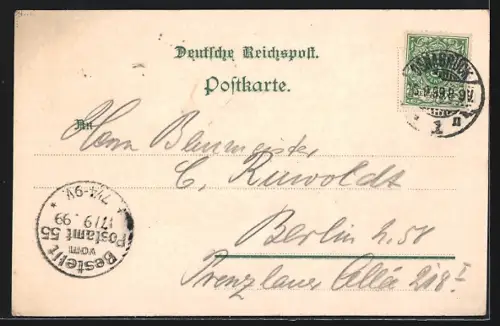 Deutsche Reichspost.
Postkarte.
An Herrn Baumeister
C. Ruwoldt
Berlin N. 58
Prenzlauer Allée 218 I
OSNABRÜCK
9.99.8-9V.
1 n
Bestellt
vom
Postamt 55
17/9.99
7¼-9V.